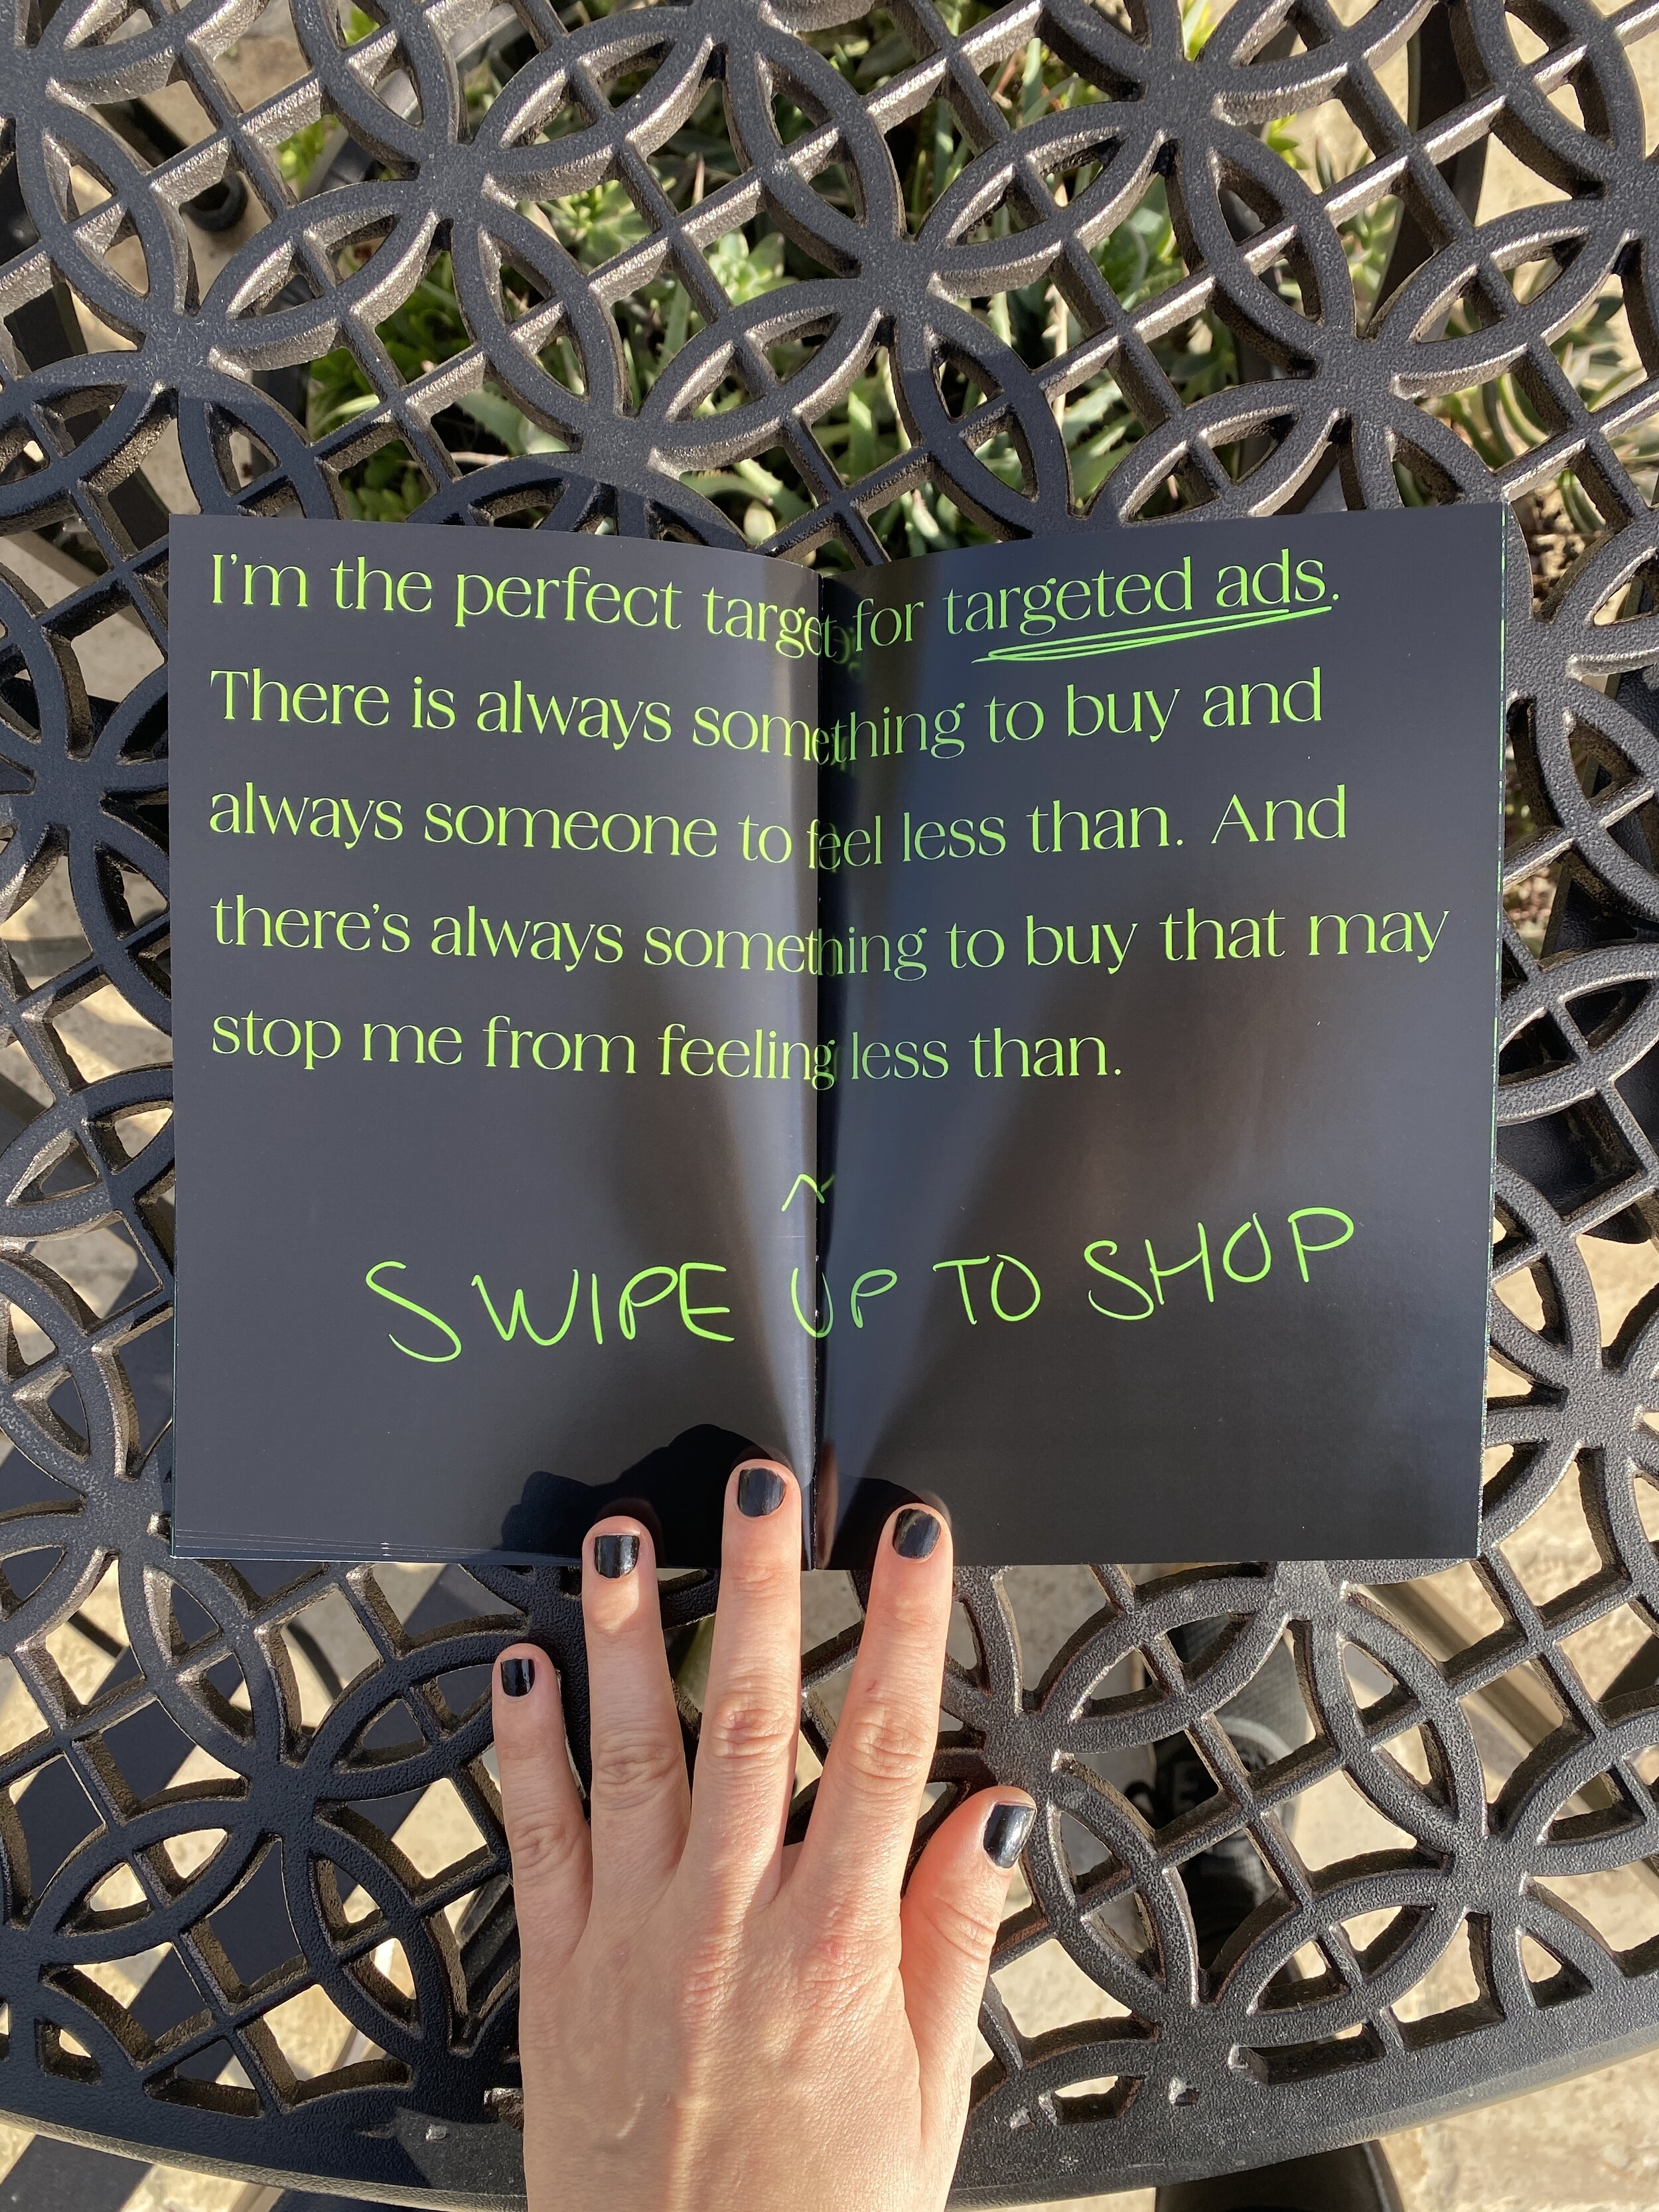 I'm the perfect target for targeted ads.
There is always something to buy and
always someone to feel less than. And
there's always something to buy that may
stop me from feeling less than.
^
SWIPE UP TO SHOP